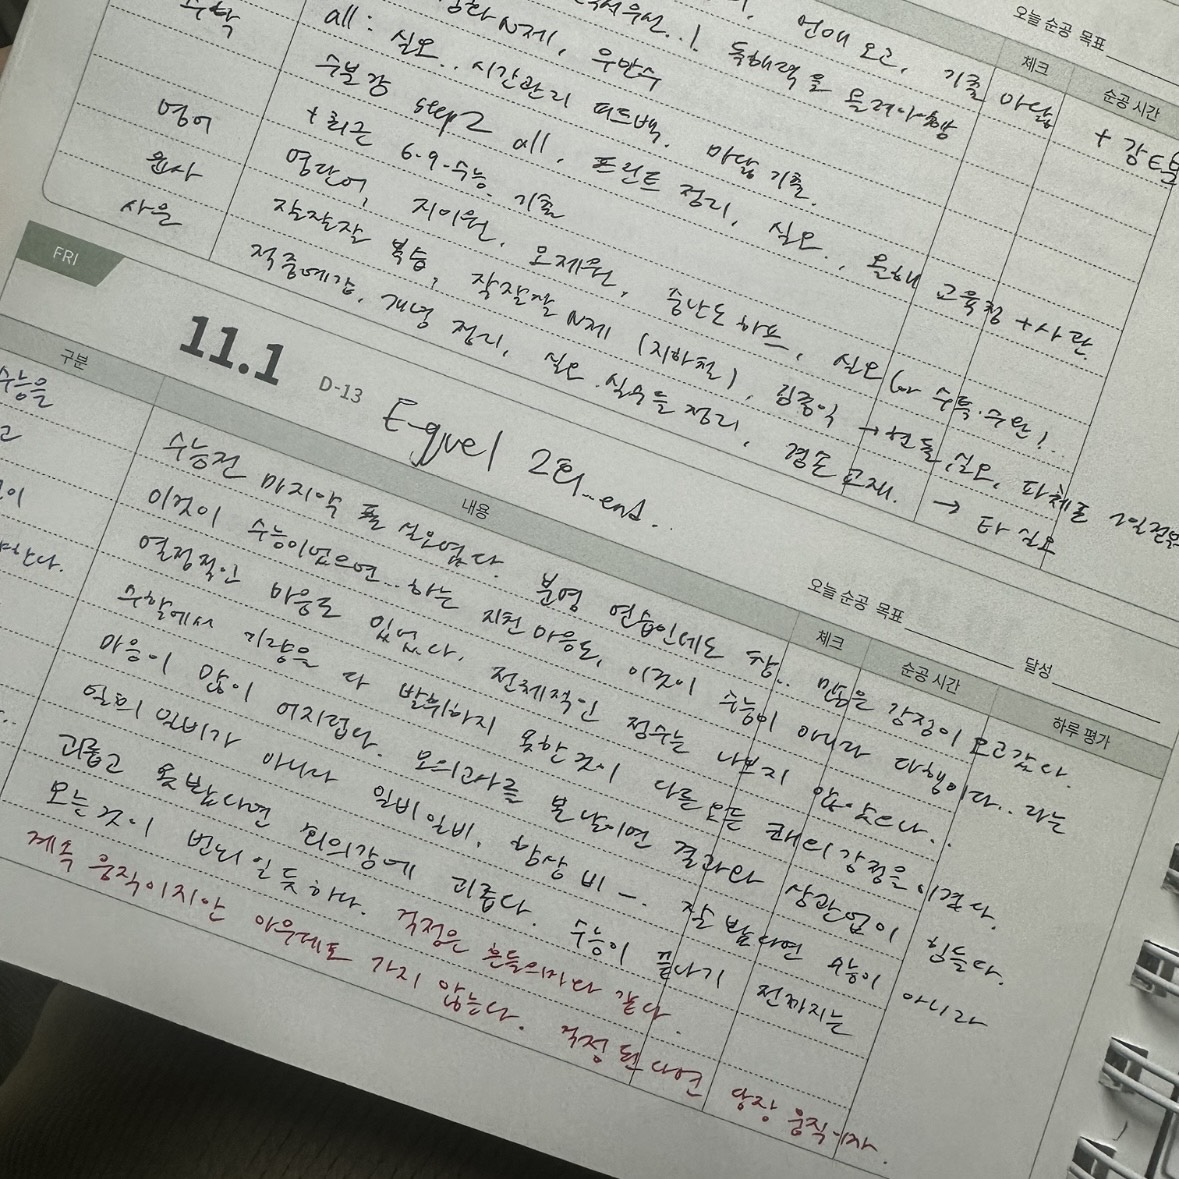 오늘 순공 목표
체크
순공 시간
언매 오르, 기출 마닳
독해력을 올려야함
N제, 우만수
+ 강E분
수학
all : 실모.. 시간관리 피드백. 마닳 기출.
수분감 step2 all, 프린트 정리, 실모.. 올해 교육청 + 사관
+ 최근 6·9·수능. 기출
영어
영단어, 지이원, 오제원, 승난도하프, 실모 (or 수특·수완)..
윤사
잘잘잘 복습, 잘잘잘 N제 (지하철), 김종익 → 현돌, 실모,
사문
적중예감, 개념 정리, 실모 실수들 정리, 경손 교재. → 타 실모
FRI
11.1
D-13
E-quel 2회..end..
오늘 순공 목표
달성
구분
내용
체크
순공 시간
하루 평가
수능을
고
수능전 마지막 풀 실모였다. 분명 연습인데도 참.. 많은 감정이 오고갔다.
이것이 수능이었으면.. 하는 지친 마음도, 이것이 수능이 아니라 다행이다.. 라는
열정적인 마음도 있었다. 전체적인 점수는 나쁘지 않았으나..
수학에서 기량을 다 발휘하지 못한것이 다른 모든 쾌의 감정을 이겼다.
마음이 많이 어지럽다 모의고사를 본 날이면 결과와 상관없이 힘들다.
일희일비가 아니라 일비일비, 항상 비 -. 잘 봤다면 수능이 아니라
괴롭고 못봤다면 회의감에 괴롭다. 수능이 끝나기 전까지는
오는것이 번뇌일듯하다. 걱정은 흔들의자와 같다.
계속 움직이지만 아무데도 가지 않는다. 걱정된다면 당장 움직이자.